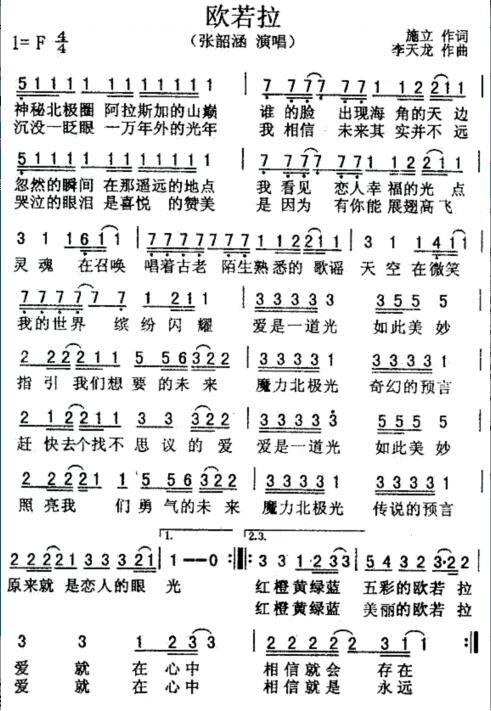 欧若拉
1=F 4/4 (张韶涵 演唱) 施立 作词
李天龙 作曲
5 1 1 1 1 1 1 1 1 1 1 1 1 1 7 7 7 7 7 7 1 2 2 1 1
神秘北极圈 阿拉斯加的山巅 谁的脸 出现海 角的天 边
沉没一眨眼 一万年外的光年 我相信 未来其 实并不 远
忽然的瞬间 在那遥远的地点 我 看见 恋人幸 福的光 点
哭泣的眼泪 是喜悦 的赞美 是 因为 有你能 展翅高 飞
3 1 1 6 1 1 7 7 7 7 7 7 7 1 1 2 2 1 1 3 1 1 4 1 1
灵 魂 在召唤 唱着古老 陌生熟悉的 歌谣 天 空 在微笑
7 7 7 7 7 7 1 2 1 1 3 3 3 3 3 3 5 5 5
我的世 界 缤 纷 闪 耀 爱是一道光 如此美 妙
2 2 2 2 2 1 1 5 5 6 3 2 2 3 3 3 3 3 3 3 3 3 3
指 引 我们想 要 的未 来 魔力北极光 奇幻的预言
赶 快去个找不 思 议 的 爱 爱是一道光 如此美 妙
照 亮我 们 勇 气的未 来 魔力北极光 传说的预言
1. 2.3.
2 2 2 2 1 3 3 3 2 1 1 1--0 3 3 3 1 2 3 3 5 4 3 2 3·2 2
原来就 是恋人的眼 光 红橙黄绿蓝 五彩的欧若 拉
红橙黄绿蓝 美丽的欧若 拉
3 3 1 2 3 3 2 2 2 2 2 2 -
爱 就 在 心中 相信就会 存在
爱 就 在 心中 相信就是 永远